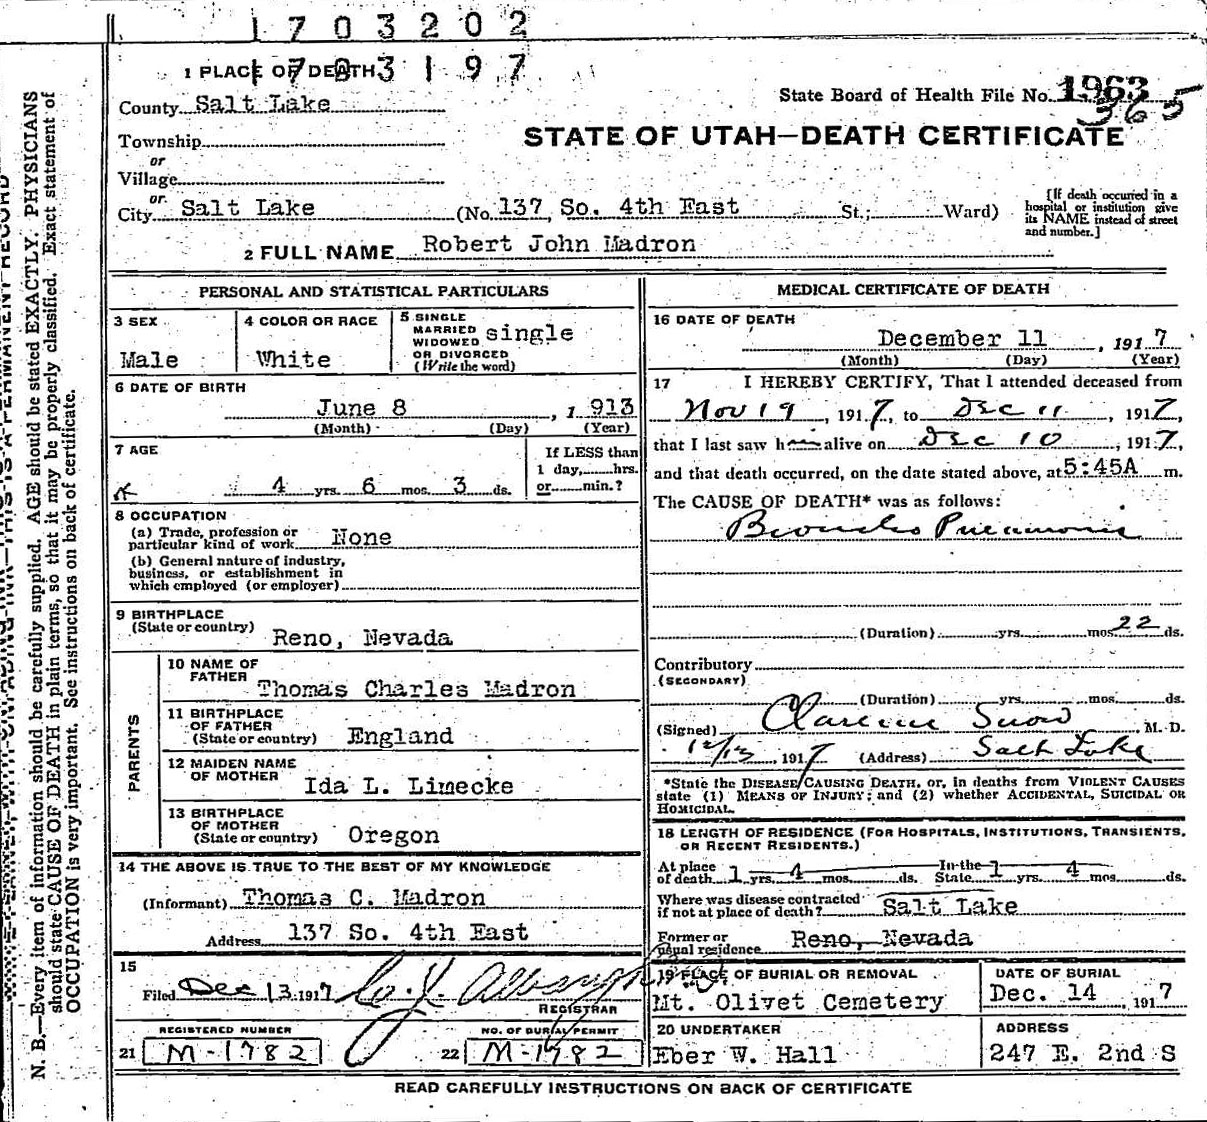 1703202
1703197
1 PLACE OF DEATH
County Salt Lake
State Board of Health File No. 1963
365
Township
or
STATE OF UTAH—DEATH CERTIFICATE
Village
or
City Salt Lake (No. 137 So. 4th East St.; Ward)
[If death occurred in a
hospital or institution give
its NAME instead of street
and number.]
2 FULL NAME Robert John Madron
PERSONAL AND STATISTICAL PARTICULARS
3 SEX
Male
4 COLOR OR RACE
White
5 SINGLE
MARRIED
WIDOWED
OR DIVORCED
(Write the word)
single
6 DATE OF BIRTH
June 8, 1913
(Month) (Day) (Year)
7 AGE
4 yrs. 6 mos. 3 ds.
If LESS than
1 day, hrs.
or min.?
8 OCCUPATION
(a) Trade, profession or
particular kind of work None
(b) General nature of industry,
business, or establishment in
which employed (or employer)
9 BIRTHPLACE
(State or country) Reno, Nevada
PARENTS
10 NAME OF
FATHER Thomas Charles Madron
11 BIRTHPLACE
OF FATHER
(State or country) England
12 MAIDEN NAME
OF MOTHER Ida L. Limecke
13 BIRTHPLACE
OF MOTHER
(State or country) Oregon
14 THE ABOVE IS TRUE TO THE BEST OF MY KNOWLEDGE
(Informant) Thomas C. Madron
Address 137 So. 4th East
15
Filed Dec 13 1917
REGISTRAR
REGISTERED NUMBER
21 M-1782
NO. OF BURIAL PERMIT
22 M-1782
MEDICAL CERTIFICATE OF DEATH
16 DATE OF DEATH
December 11, 1917
(Month) (Day) (Year)
17 I HEREBY CERTIFY, That I attended deceased from
Nov 19, 1917, to Dec 11, 1917,
that I last saw h alive on Dec 10, 1917,
and that death occurred, on the date stated above, at 5:45A m.
The CAUSE OF DEATH* was as follows:
Broncho Pneumonia
(Duration) yrs. mos. 22 ds.
Contributory
(SECONDARY)
(Duration) yrs. mos. ds.
(Signed) Clarence Snow M. D.
12/13, 1917 (Address) Salt Lake
*State the DISEASE CAUSING DEATH, or, in deaths from VIOLENT CAUSES
state (1) MEANS OF INJURY; and (2) whether ACCIDENTAL, SUICIDAL OR
HOMICIDAL.
18 LENGTH OF RESIDENCE (FOR HOSPITALS, INSTITUTIONS, TRANSIENTS,
OR RECENT RESIDENTS.)
At place
of death 1 yrs. 4 mos. ds.
In the
State 1 yrs. 4 mos. ds.
Where was disease contracted
if not at place of death? Salt Lake
Former or
usual residence Reno, Nevada
19 PLACE OF BURIAL OR REMOVAL
Mt. Olivet Cemetery
DATE OF BURIAL
Dec. 14, 1917
20 UNDERTAKER
Eber W. Hall
ADDRESS
247 E. 2nd S
READ CAREFULLY INSTRUCTIONS ON BACK OF CERTIFICATE
N. B.—Every item of information should be carefully supplied. AGE should be stated EXACTLY. PHYSICIANS
should state CAUSE OF DEATH in plain terms, so that it may be properly classified. Exact statement of
OCCUPATION is very important. See instructions on back of certificate.